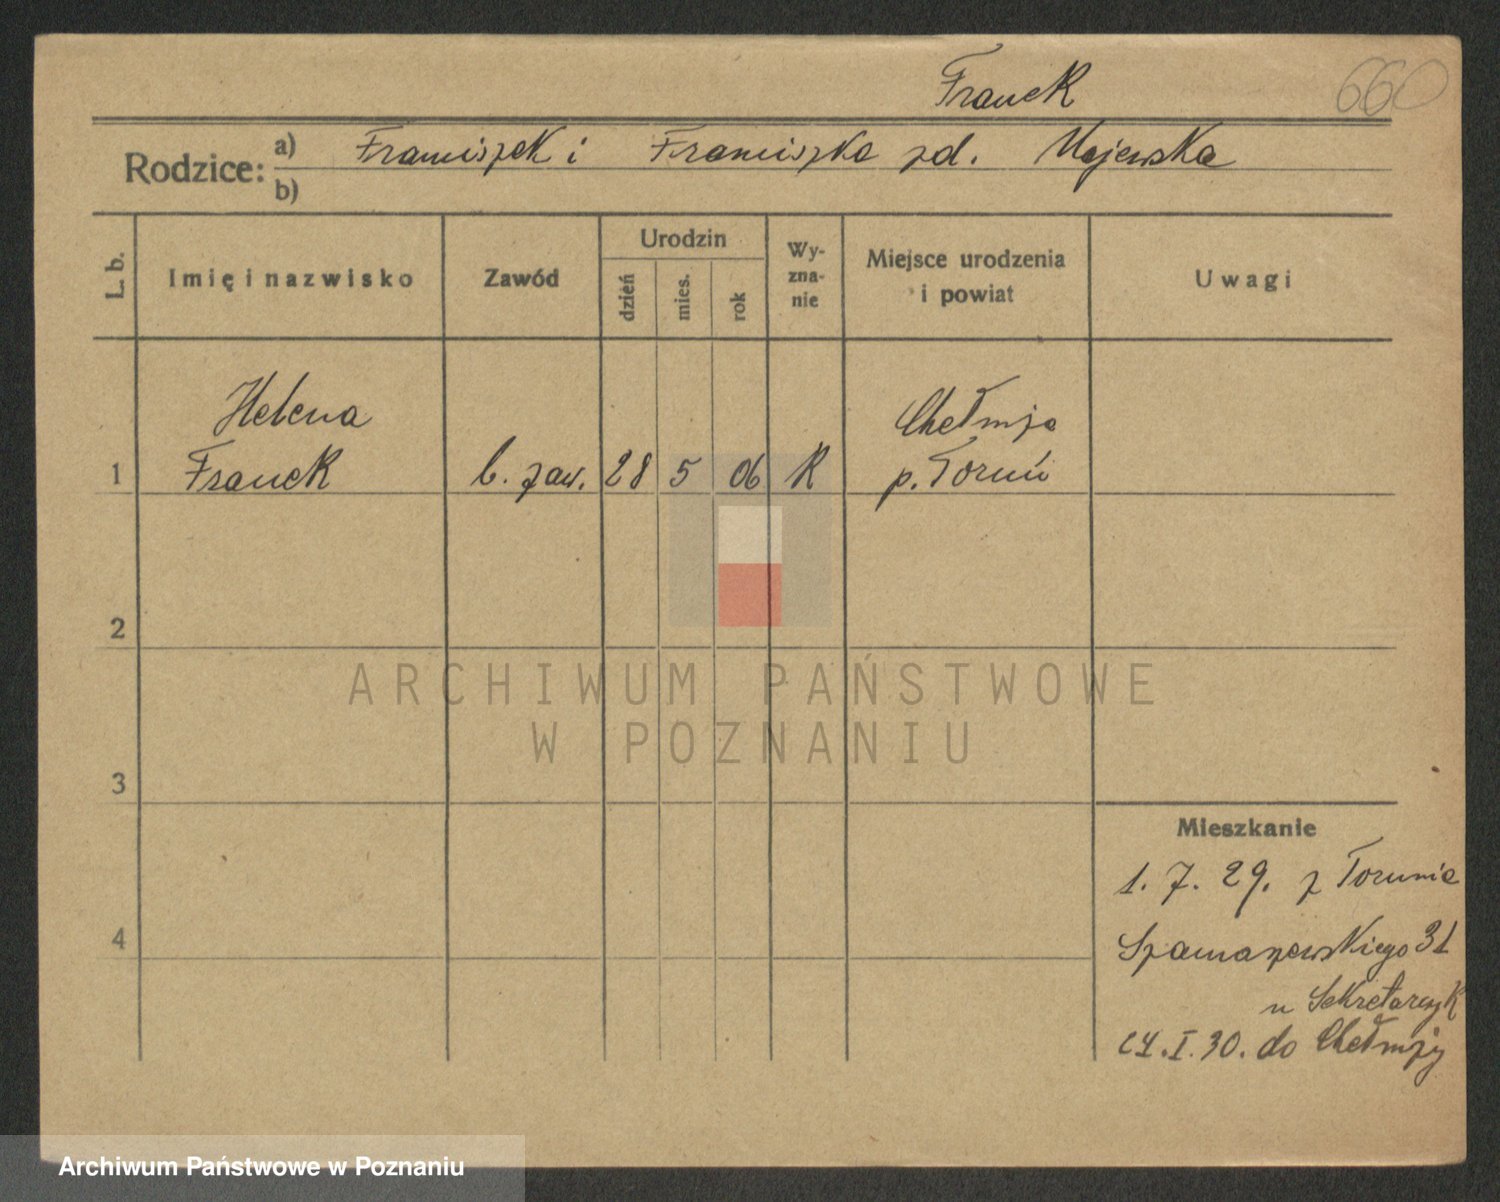 Franck
660
Rodzice:
a) Franciszek i Franciszka zd. Majewska
b)
L. b.
Imię i nazwisko
Zawód
Urodzin
dzień
mies.
rok
Wy-
zna-
nie
Miejsce urodzenia
i powiat
Uwagi
Helena
Chełmża
1 Franck b. zaw. 28 5 06 R p. Toruń
2
ARCHIWUM PAŃSTWOWE
W POZNANIU
3
Mieszkanie
1. 7. 29. z Torunia
4
Szamarzewskiego 31
u Sekretarczyk
24. I. 30. do Chełmży
Archiwum Państwowe w Poznaniu